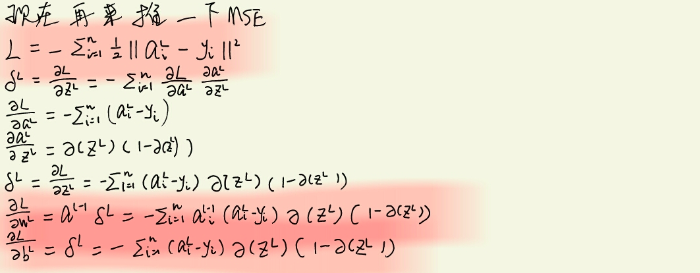 现在再来推一下MSE
L = - Σᵢ₌₁ⁿ ½ || aᵢᴸ - yᵢ ||²
δᴸ = ∂L/∂zᴸ = - Σᵢ₌₁ⁿ ∂L/∂aᴸ ∂aᴸ/∂zᴸ
∂L/∂aᴸ = - Σᵢ₌₁ⁿ (aᵢᴸ - yᵢ)
∂aᴸ/∂zᴸ = ∂(zᴸ) (1 - ∂(zᴸ))
δᴸ = ∂L/∂zᴸ = - Σᵢ₌₁ⁿ (aᵢᴸ - yᵢ) ∂(zᴸ) (1 - ∂(zᴸ))
∂L/∂wᴸ = aᴸ⁻¹ δᴸ = - Σᵢ₌₁ⁿ aᵢᴸ⁻¹ (aᵢᴸ - yᵢ) ∂(zᴸ) (1 - ∂(zᴸ))
∂L/∂bᴸ = δᴸ = - Σᵢ₌₁ⁿ (aᵢᴸ - yᵢ) ∂(zᴸ) (1 - ∂(zᴸ))